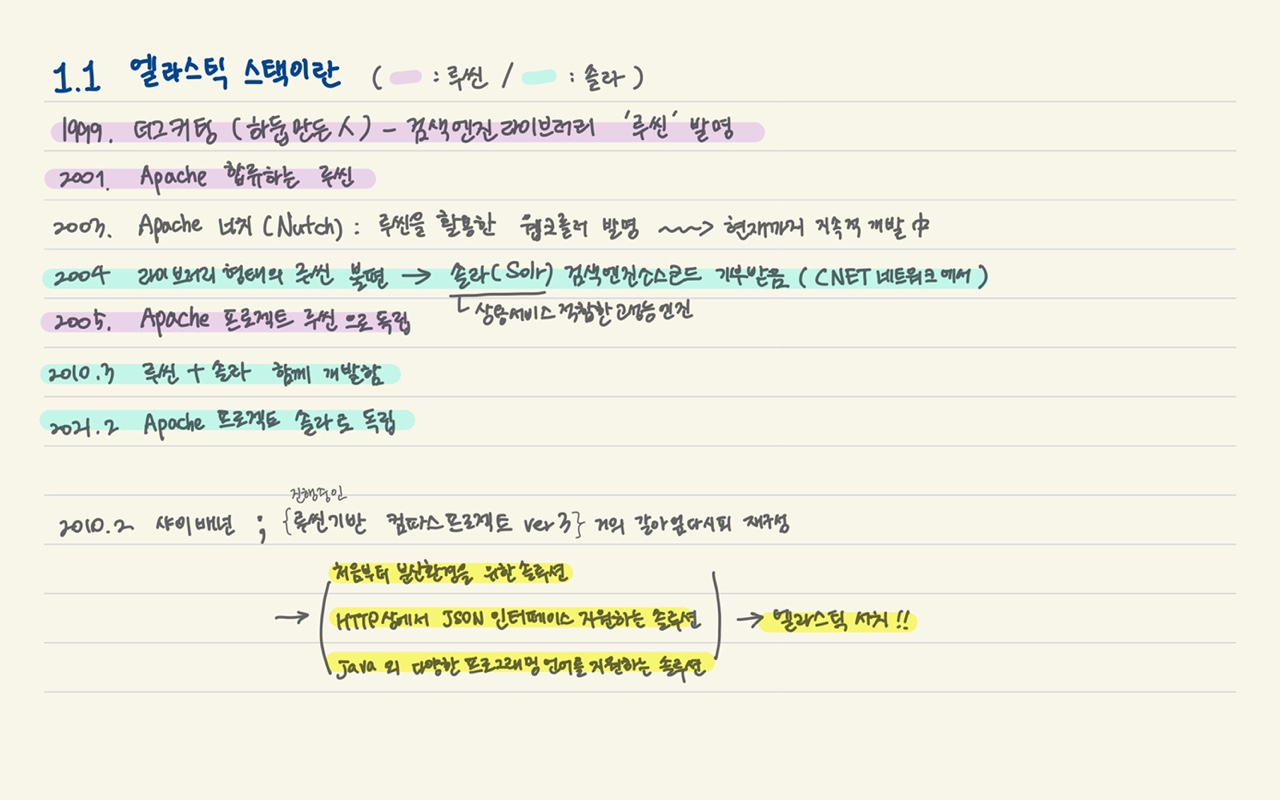 1.1 엘라스틱 스택이란 ( : 루씬 / : 솔라 )
1999. 더그커팅 (하둡만든 人) - 검색엔진라이브러리 '루씬' 발명
2001. Apache 합류하는 루씬
2003. Apache 너치 (Nutch) : 루씬을 활용한 웹크롤러 발명 ~~~> 현재까지 지속적 개발 中
2004 라이브러리 형태의 루씬 불편 → 솔라(Solr) 검색엔진소스코드 기부받음 ( CNET 네트워크에서 )
└ 상용서비스 적합한 고성능엔진
2005. Apache 프로젝트 루씬으로 독립
2010.3 루씬 + 솔라 함께 개발함
2021.2 Apache 프로젝트 솔라로 독립
진행중인
2010.2 샤이배넌 ; {루씬기반 컴파스프로젝트 ver 3} 거의 갈아엎다시피 재구성
처음부터 분산환경을 위한 솔루션
→ HTTP상에서 JSON 인터페이스 지원하는 솔루션 → 엘라스틱 서치!!
Java 외 다양한 프로그래밍언어를 지원하는 솔루션